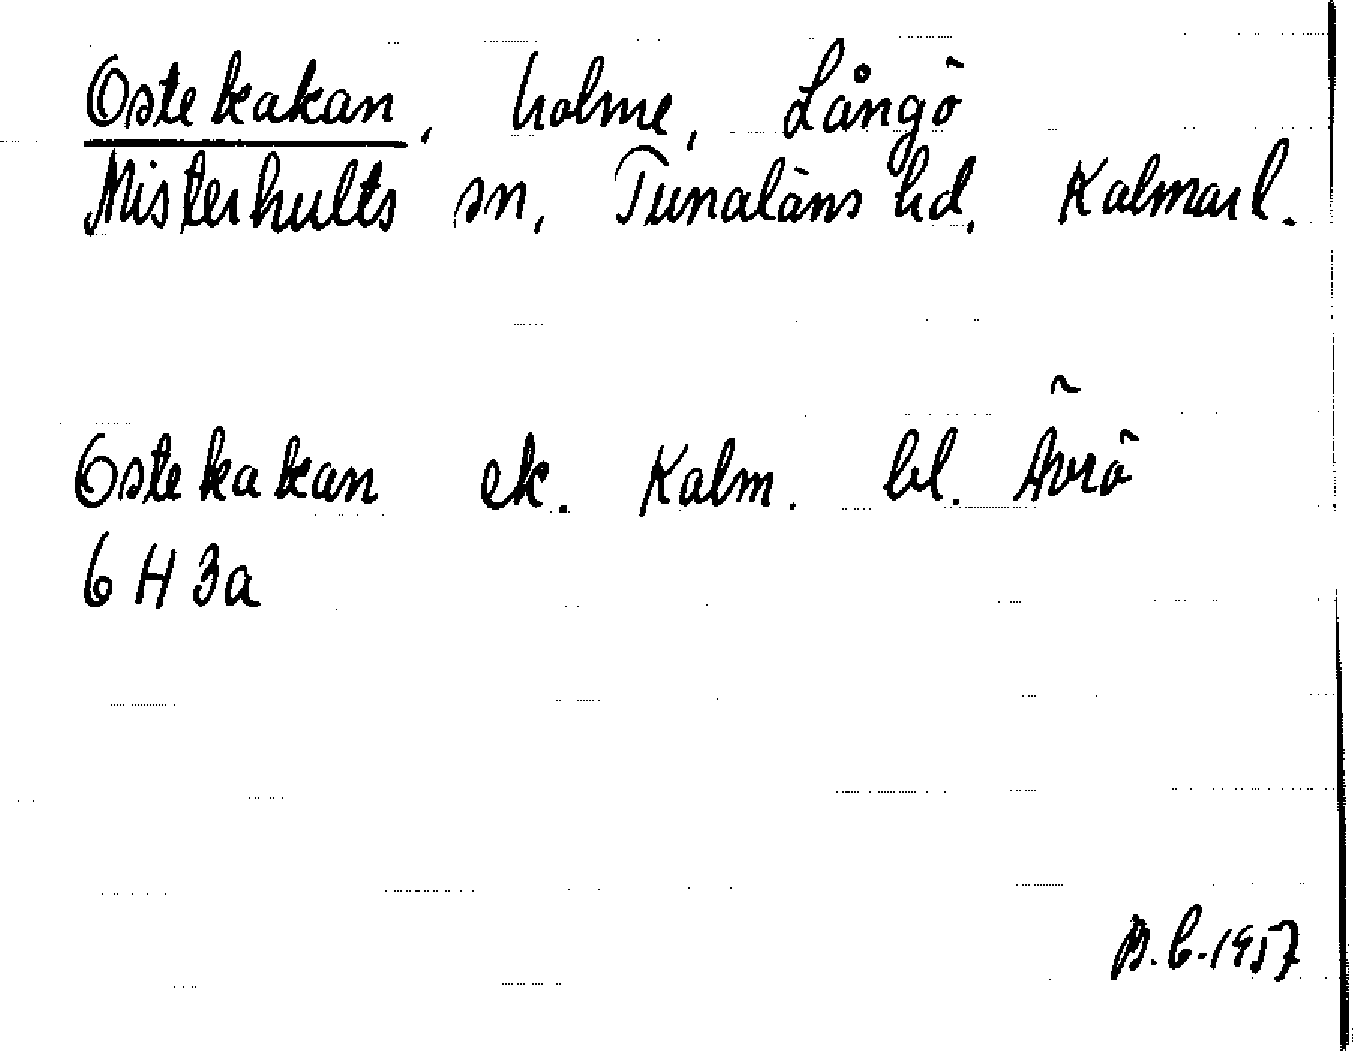 Ostekakan, holme, Långö
Misterhults sn, Tunaläns hd, Kalmar l.
Ostekakan ek. Kalm. bl. Ävrö
6 H 3a
B.C. 1957